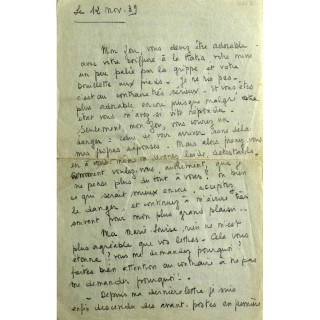 Le 12 nov. 39
Mon Jou, vous devez être adorable
avec votre coiffure à la Kaka, votre mine
un peu palie par la grippe et votre
bouillotte aux pieds. Je ne ris pas.
c'est au contraire très sérieux. Et vous êtes
plus adorable encore puisque malgré cet
état vous m'avez si vite répondu.
Seulement, mon Jou, vous courez un
danger : celui de voir arriver sans delai
mes propres réponses. Mais alors
en à vous
comment voulez-vous, autrement, que je
ne pense plus du tout à vous? Ou bien
ce qui serait mieux encore, acceptez
le danger, et continuez à m'écrire très
souvent pour mon plus grand plaisir..
Ma Marie Louise, rien ne m'est
plus agréable que vos lettres. Cela vous
étonne? vous me demandez pourquoi?
faites bien attention au contraire à ne pas
me demander pourquoi. -
- Depuis ma dernière lettre je suis
enfin descendu des avant-postes en première